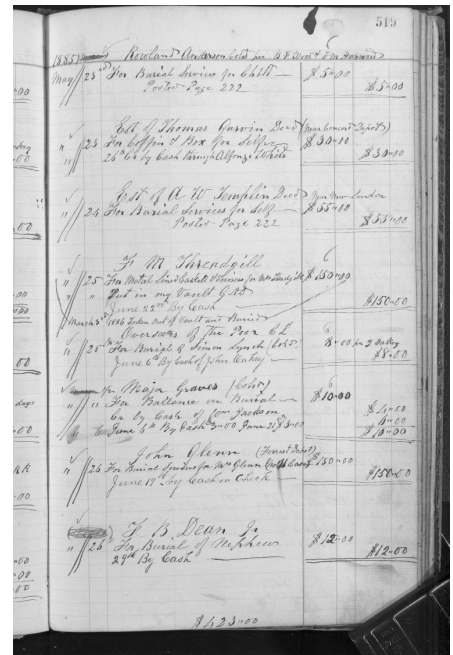 519
1885 Rowland Anderson Cold for B F West & F M Harward
May 23rd For Burial Services for Child $5-00
Posted Page 222 $5-00
Est of Thomas Garvin Decd (Near Concord Depot)
" 23 For Coffin & Box for Self $30-00
" 26th Ca by Cash through Alfonzo White $30-00
Est of A W Templin Decd Near New London
" 24 For Burial Services for Self $55-00
Posted Page 222 $55-00
F M Threadgill
" 25 For Metal Lined Caskett & Services for Mrs Threadgill $150-00
" " Put in my Vault G A D
June 22nd By Cash $150-00
March 3rd 1886 Taken Out of Vault and Buried
Overseers of the Poor C C
" 25th For Burial of Simon Lynch (Cold) 8-00 for J Oakey
June 6th By Cash of John Oakey $8-00
Major Graves (Cold)
" " For Ballance on Burial $10-00
Ca by Cash of Tom Jackson $4-00
June 6th By Cash 3-00 June 21 $3-00 6-00
$10-00
John Glenn (Forrest Depot)
" 26 For Burial Services for Mrs Glenn $150-00
June 19th by Cash in Check $150-00
F B Dean Jr
" 26 For Burial of Nephew $12-00
29th By Cash $12-00
$423-00